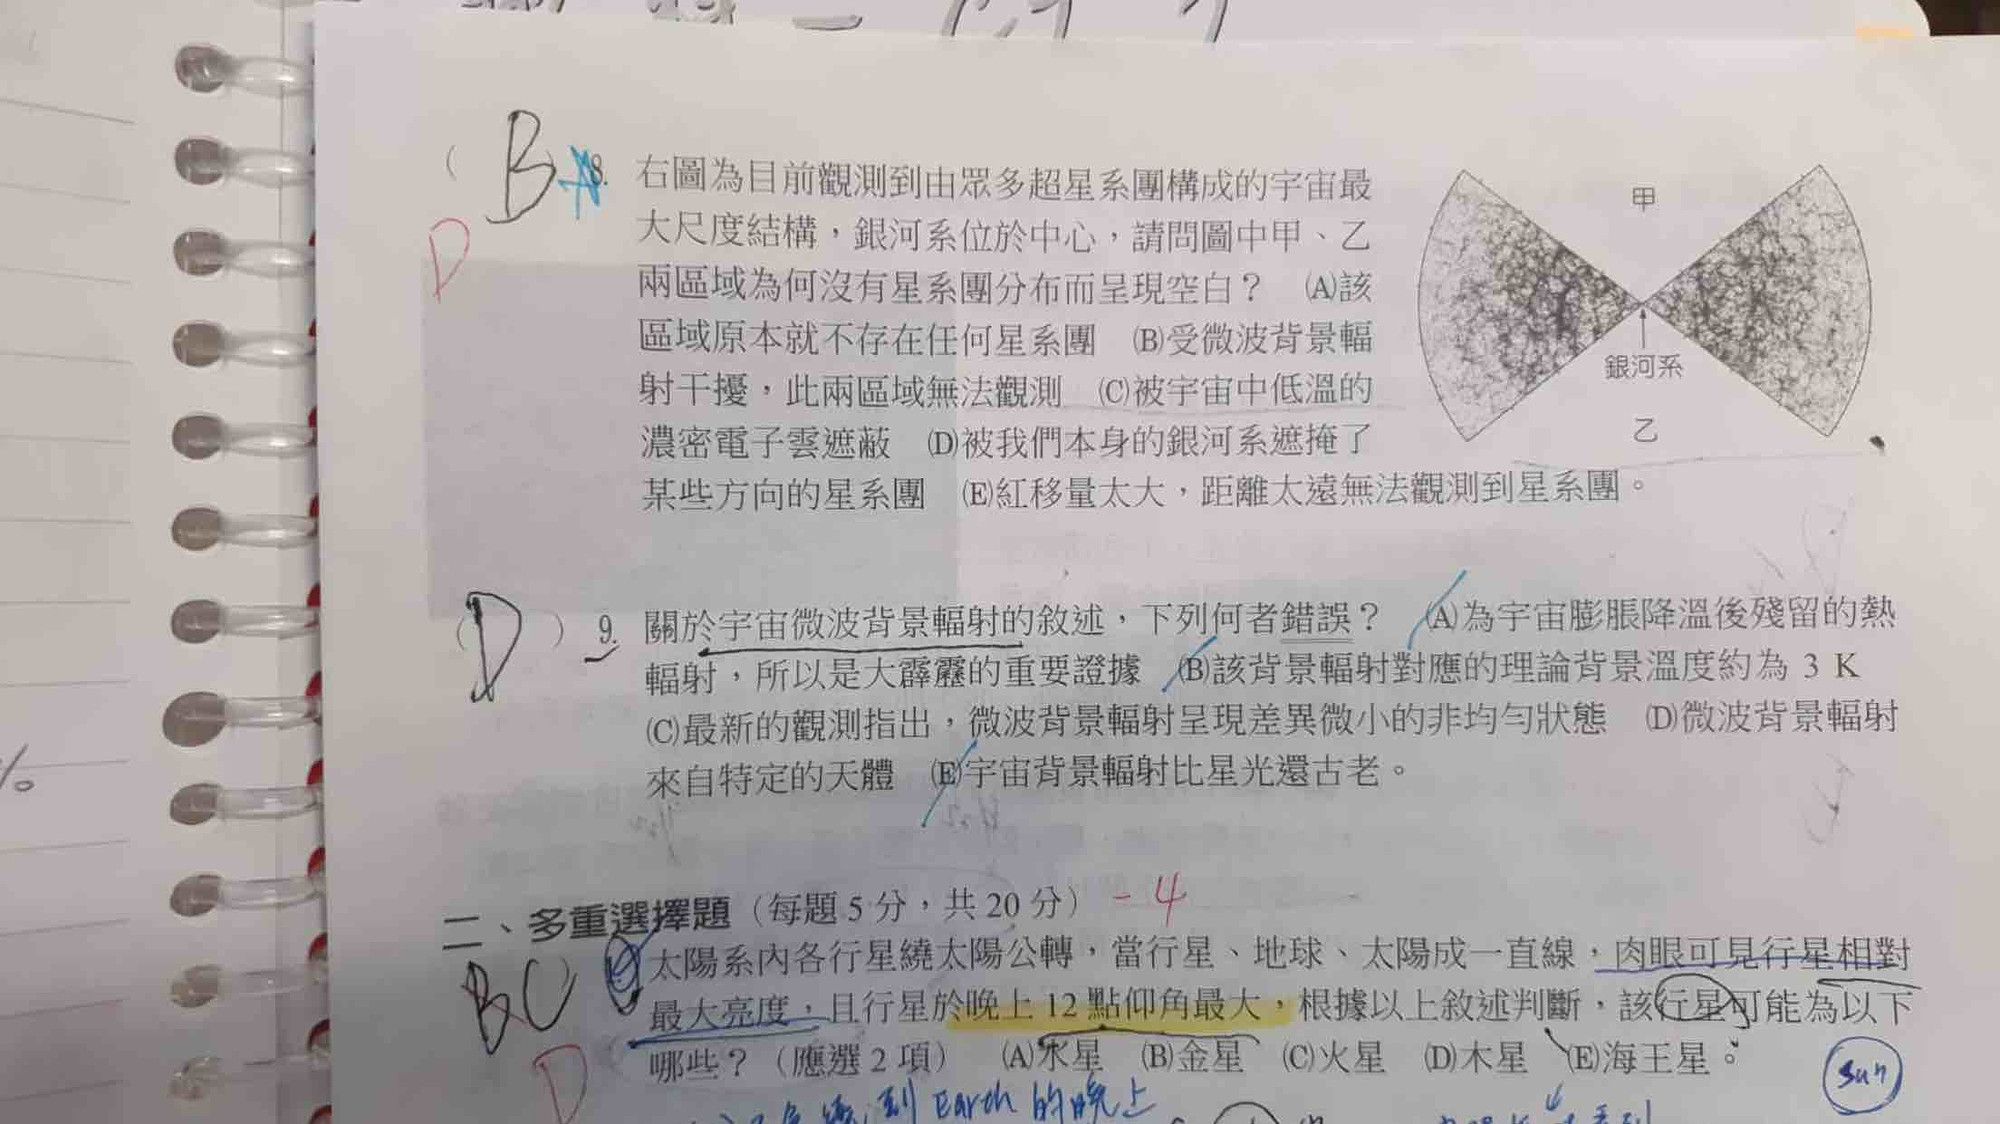 B
8. 右圖為目前觀測到由眾多超星系團構成的宇宙最
大尺度結構，銀河系位於中心，請問圖中甲、乙
兩區域為何沒有星系團分布而呈現空白？ (A)該
區域原本就不存在任何星系團 (B)受微波背景輻
射干擾，此兩區域無法觀測 (C)被宇宙中低溫的
濃密電子雲遮蔽 (D)被我們本身的銀河系遮掩了
某些方向的星系團 (E)紅移量太大，距離太遠無法觀測到星系團。
D
甲
銀河系
乙
D
9. 關於宇宙微波背景輻射的敘述，下列何者錯誤？ (A)為宇宙膨脹降溫後殘留的熱
輻射，所以是大霹靂的重要證據 (B)該背景輻射對應的理論背景溫度約為 3 K
(C)最新的觀測指出，微波背景輻射呈現差異微小的非均勻狀態 (D)微波背景輻射
來自特定的天體 (E)宇宙背景輻射比星光還古老。
二、多重選擇題（每題 5 分，共 20 分） -4
BC
太陽系內各行星繞太陽公轉，當行星、地球、太陽成一直線，肉眼可見行星相對
最大亮度，且行星於晚上 12 點仰角最大，根據以上敘述判斷，該行星可能為以下
哪些？（應選 2 項） (A)水星 (B)金星 (C)火星 (D)木星 (E)海王星。
D
Sun
到 Earth 的晚上